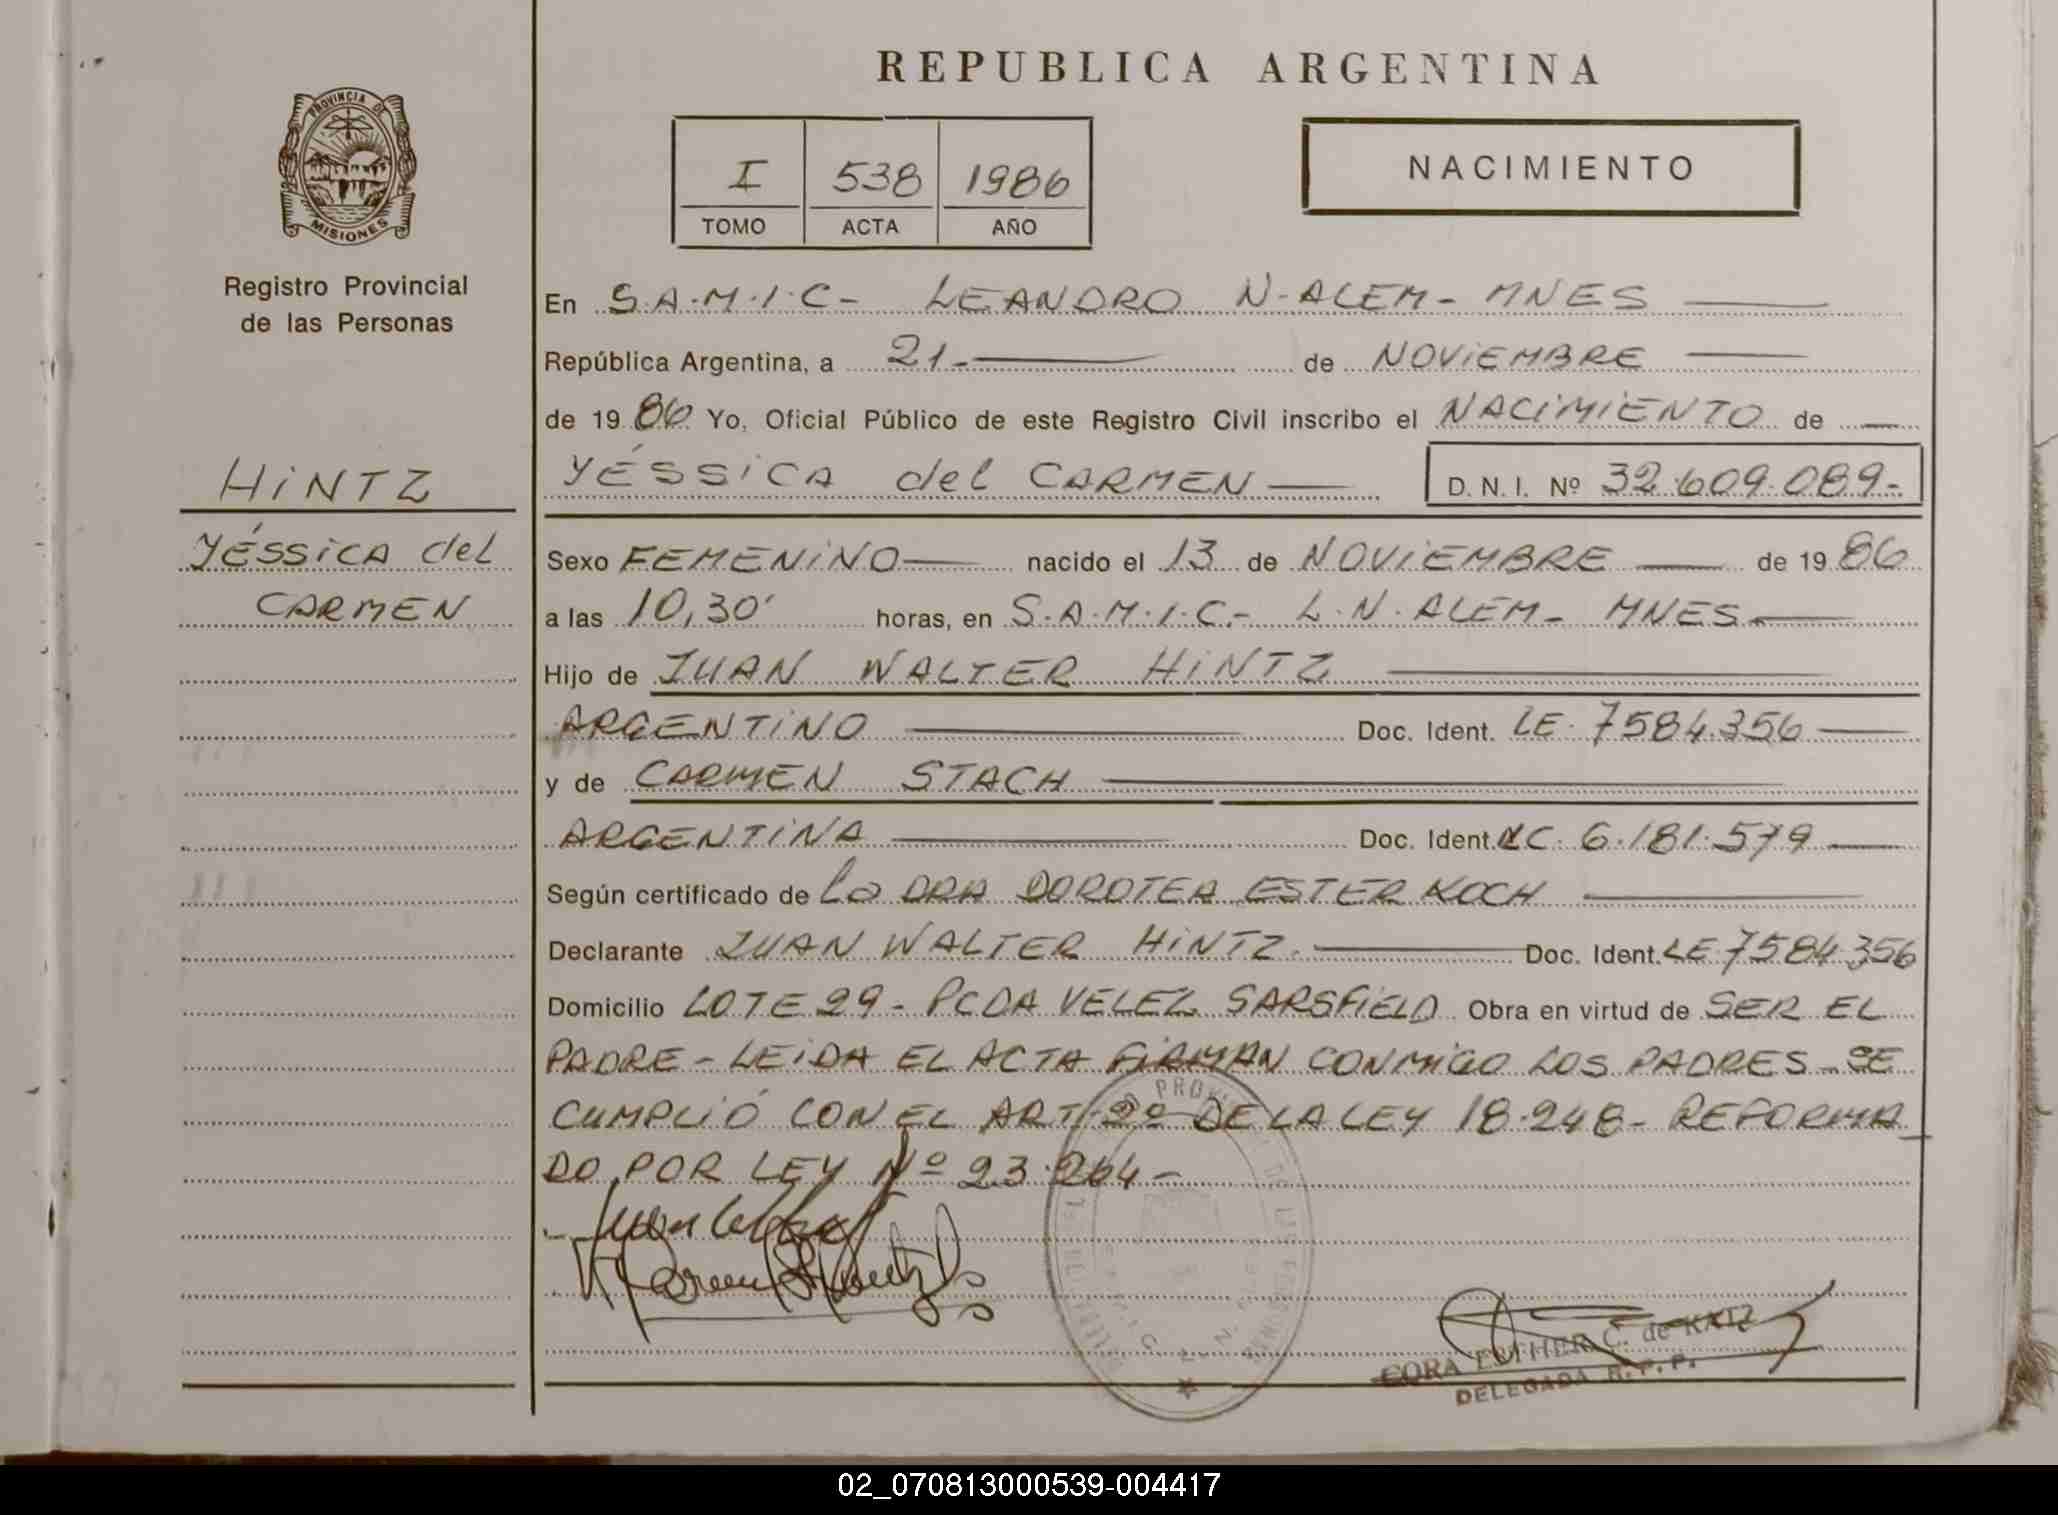 REPUBLICA ARGENTINA
PROVINCIA DE
MISIONES
Registro Provincial
de las Personas
I 538 1986
TOMO ACTA AÑO
NACIMIENTO
En S.A.M.I.C- LEANDRO N-ALEM- MNES
República Argentina, a 21- de NOVIEMBRE
de 19 86 Yo, Oficial Público de este Registro Civil inscribo el NACIMIENTO de
HINTZ
YÉSSICA del CARMEN D. N. I. Nº 32.609.089-
YÉSSICA del
CARMEN
Sexo FEMENINO nacido el 13 de NOVIEMBRE de 19 86
a las 10,30' horas, en S.A.M.I.C.- L.N.ALEM- MNES-
Hijo de JUAN WALTER HINTZ
ARGENTINO Doc. Ident. LE. 7584.356
y de CARMEN STACH
ARGENTINA Doc. Ident. LC. 6.181.579
Según certificado de La DRA DOROTEA ESTER KOCH
Declarante JUAN WALTER HINTZ. Doc. Ident. LE 7584.356
Domicilio LOTE 29- PCDA VELEZ SARSFIELD Obra en virtud de SER EL
PADRE- LEIDA EL ACTA FIRMAN CONMIGO LOS PADRES- SE
CUMPLIÓ CON EL ART- 2º DE LA LEY 18.248- REFORMA_
DO POR LEY Nº 23.264-
CORA ESTHER C. de KATZ
DELEGADA R.P.P.
02_070813000539-004417